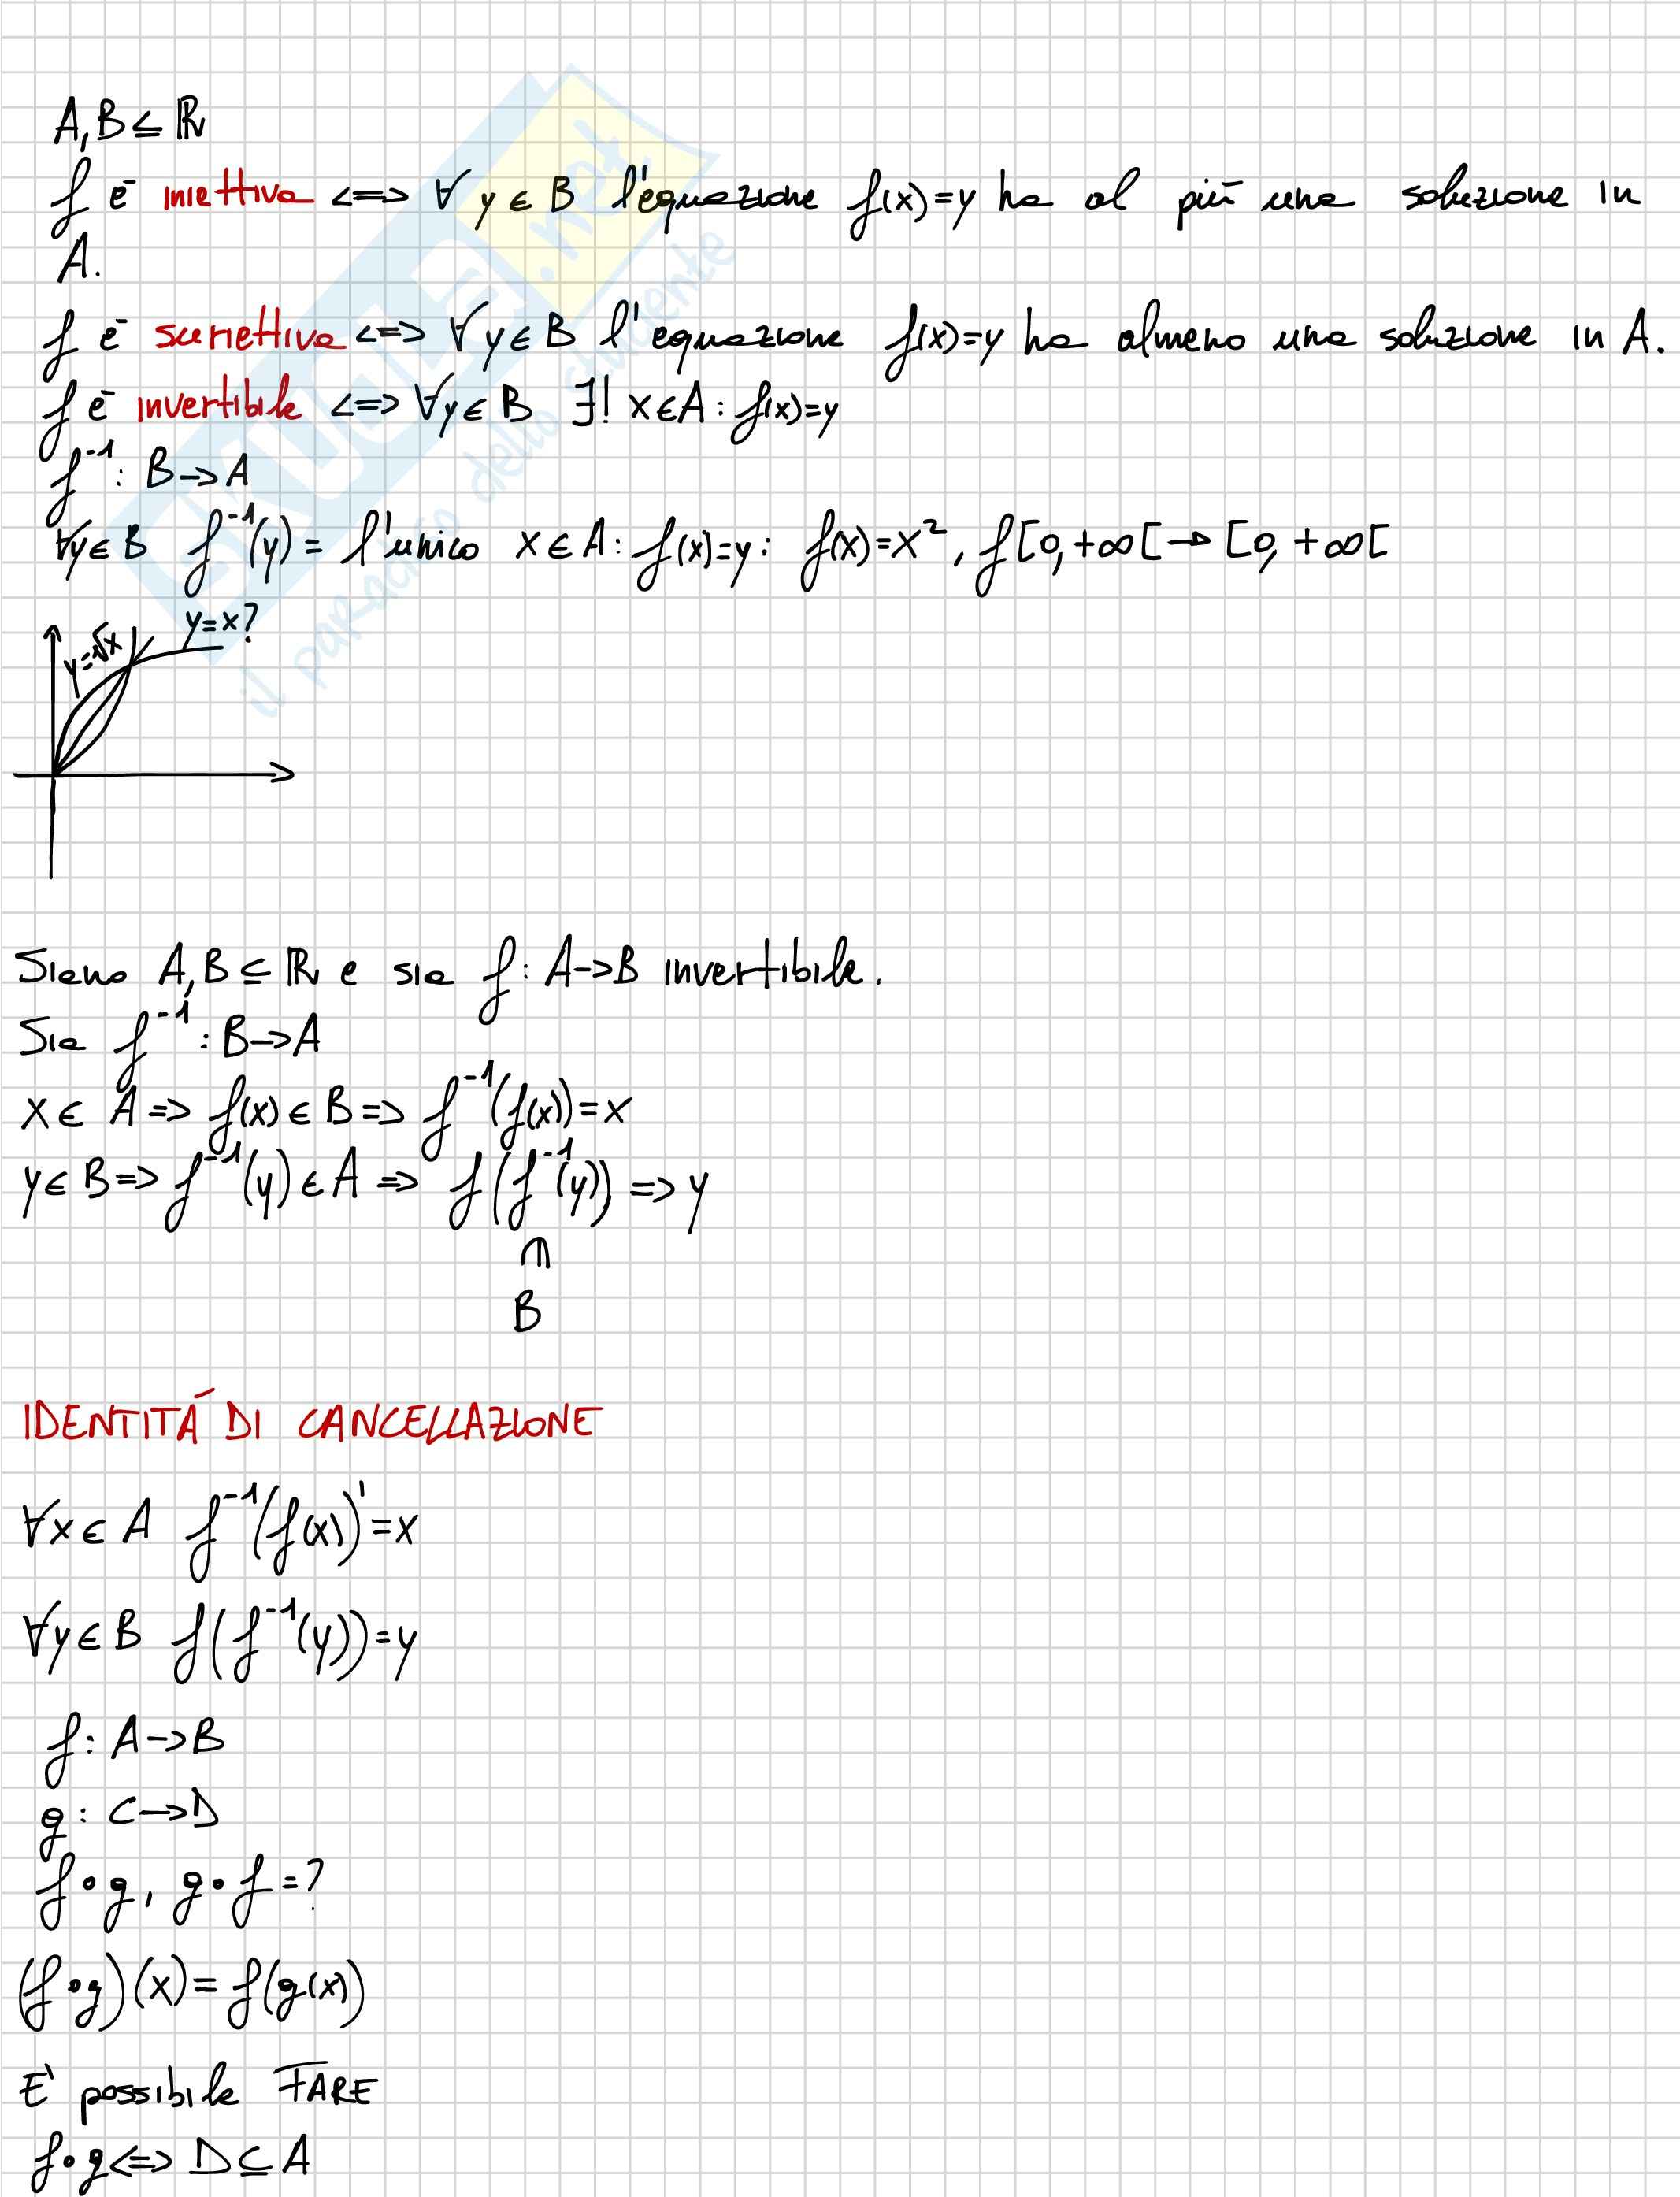 A, B ⊆ ℝ
f è iniettiva <=> ∀ y ∈ B l'equazione f(x)=y ha al più una soluzione in
A.
f è suriettiva <=> ∀ y ∈ B l'equazione f(x)=y ha almeno una soluzione in A.
f è invertibile <=> ∀y ∈ B ∃! x ∈ A : f(x)=y
f⁻¹ : B → A
∀y ∈ B f⁻¹(y) = l'unico x ∈ A : f(x)=y : f(x)=x², f[0,+∞[ → [0,+∞[
y=√x y=x?
Siano A, B ⊆ ℝ e sia f : A → B invertibile.
Sia f⁻¹ : B → A
x ∈ A => f(x) ∈ B => f⁻¹(f(x)) = x
y ∈ B => f⁻¹(y) ∈ A => f(f⁻¹(y)) => y
∩
B
IDENTITÁ DI CANCELLAZIONE
∀x ∈ A f⁻¹(f(x))'=x
∀y ∈ B f(f⁻¹(y))=y
f : A → B
g : C → D
f∘g, g∘f = ?
(f∘g)(x) = f(g(x))
E' possibile FARE
f∘g <=> D ⊆ A
SKUOLA.net
il paradiso dello studente